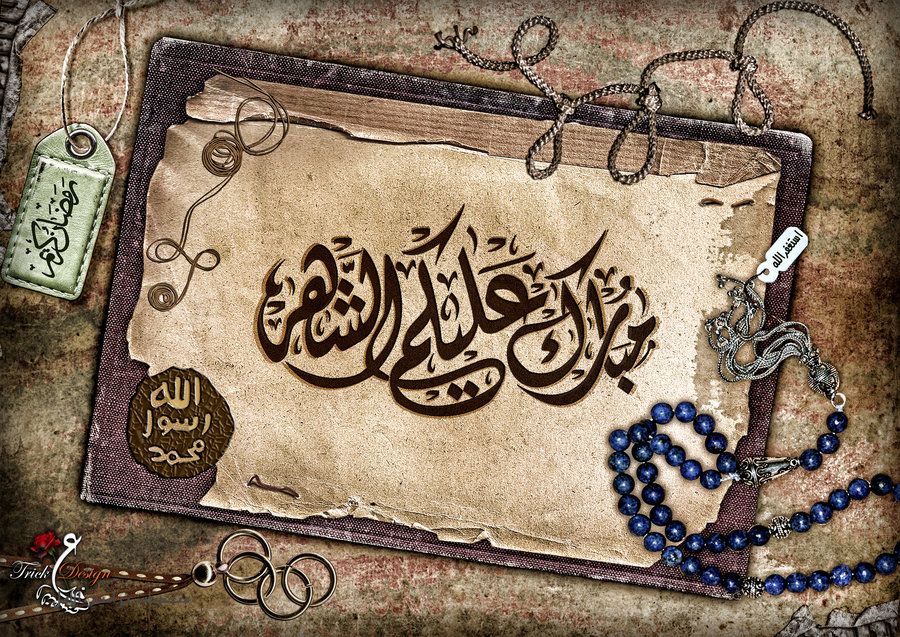 مبارك عليكم الشهر
رمضان كريم
استغفر الله
الله
رسول
محمد
Trick Design